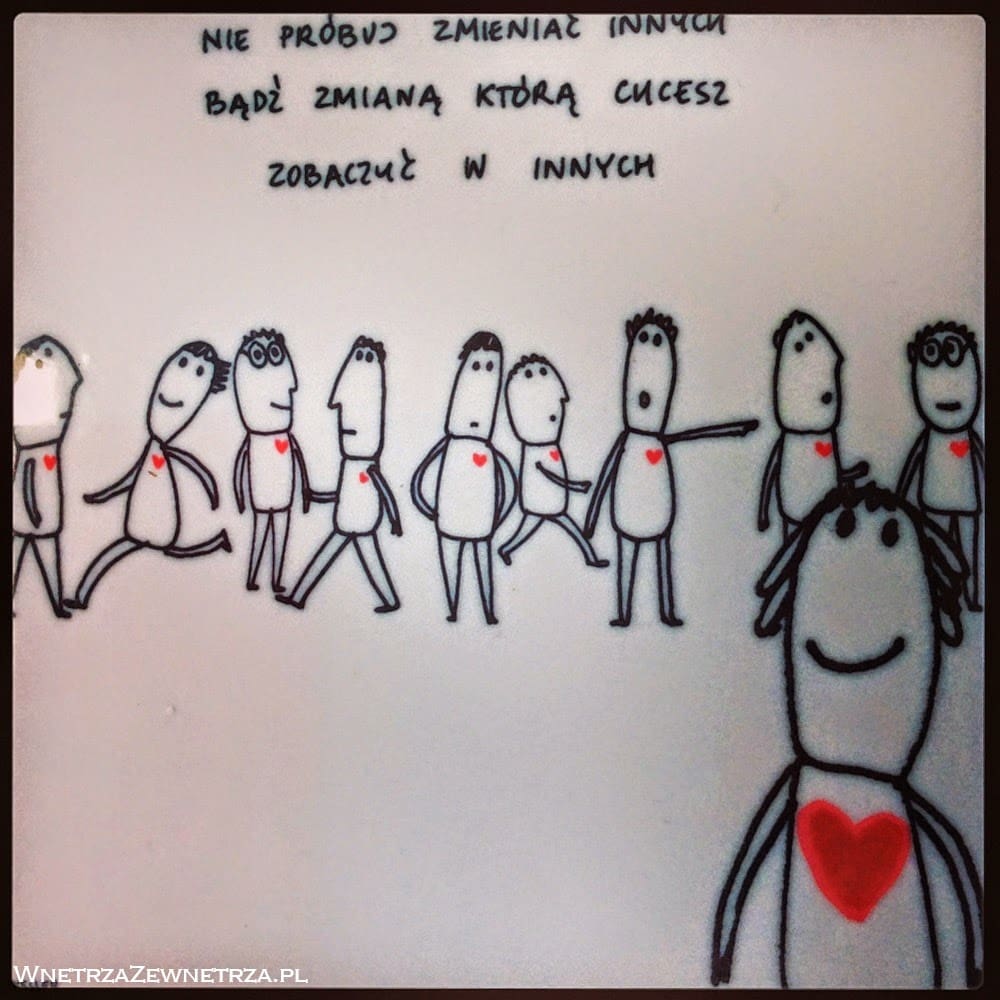 NIE PRÓBUJ ZMIENIAĆ INNYCH
BĄDŹ ZMIANĄ KTÓRĄ CHCESZ
ZOBACZYĆ W INNYCH
WNETRZAZEWNETRZA.PL